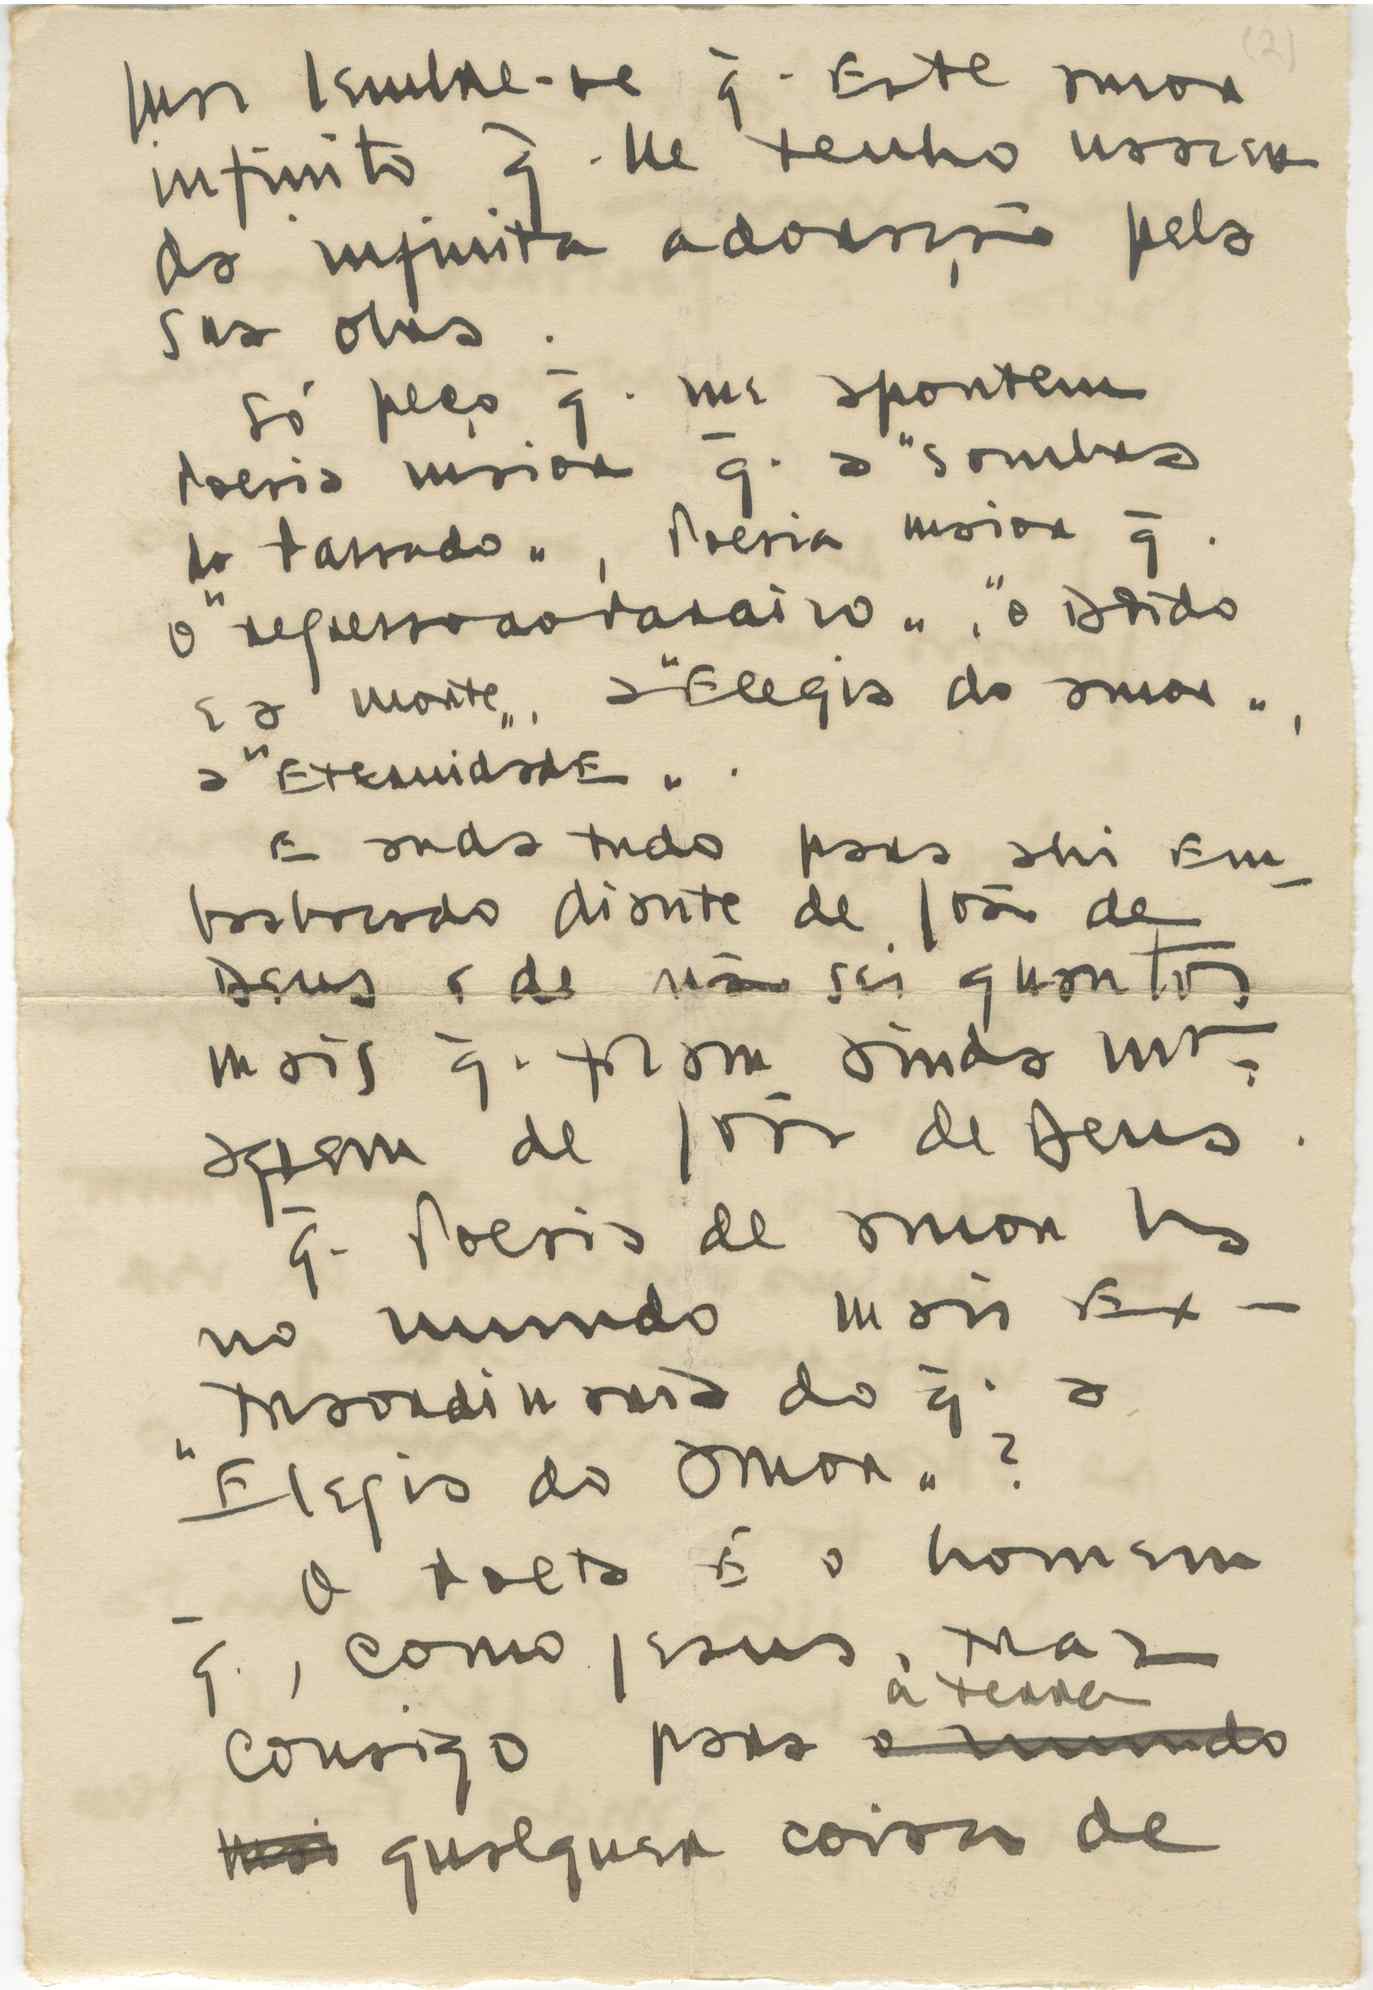 (2)
mas lembre-se q̄. Este amor
infinito q̄. lhe tenho nasceu
da infinita adoração pela
sua obra.
Só peço q̄. me apontem
Poesia maior q̄. a "Sombra
do Passado„, Poesia maior q̄.
o "regresso ao Paraiso„, "o Doido
e a morte„, a "Elegia do amor„,
a "Eternidade„.
E anda tudo para ahi em-
basbacado diante de João de
Deus e de não sei quantos
mais q̄. ainda
de João de Deus.
q̄. Poesia de amor ha
no mundo mais ex-
traordinaria do q̄. a
"Elegia do amor„?
O Poeta é o homem
q̄., como Jesus, traz
á terra
consigo para o mundo
mai qualquer coisa de